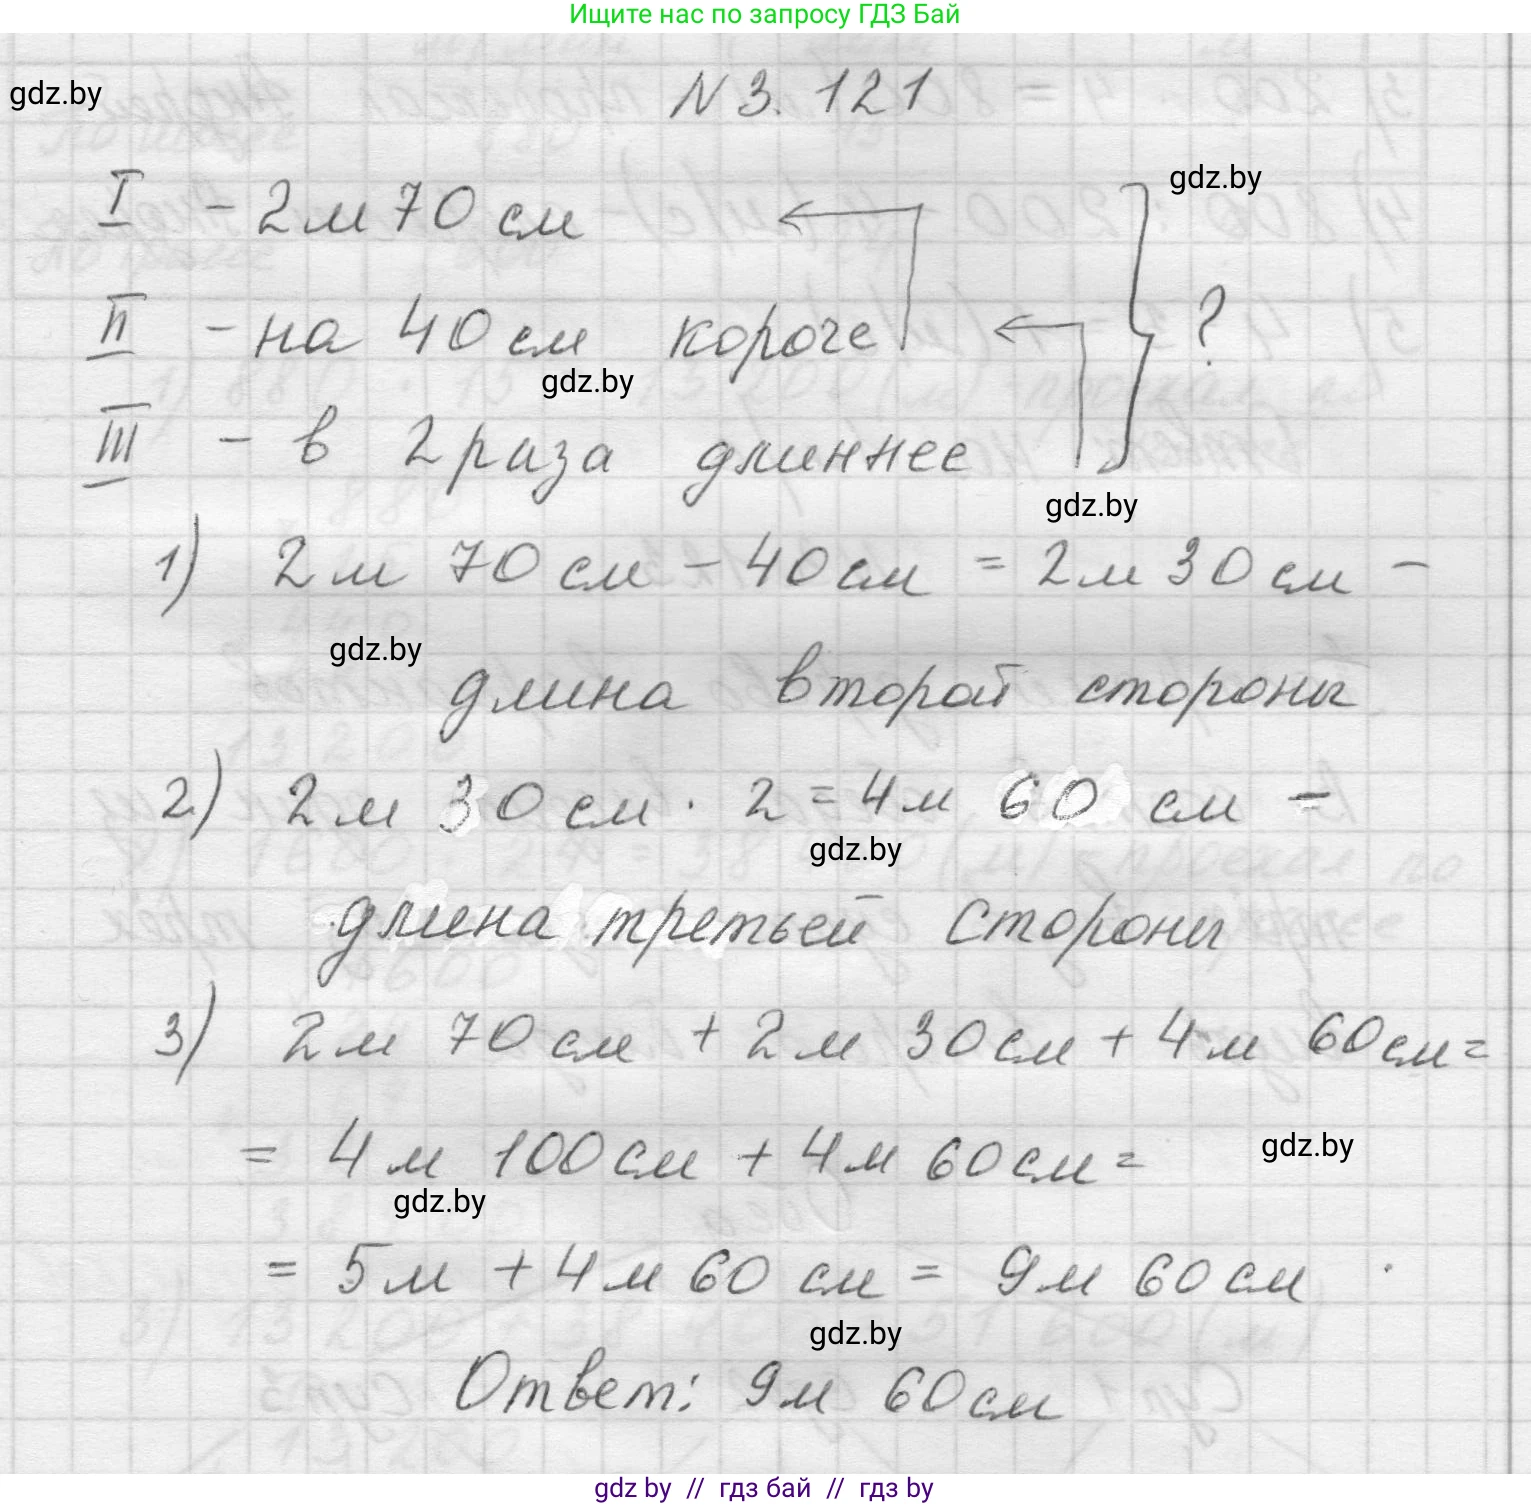 Ищите нас по запросу ГДЗ Бай
gdz.by
N 3. 121
gdz.by
I - 2 м 70 см
II - на 40 см короче
?
gdz.by
III - в 2 раза длиннее
gdz.by
1) 2 м 70 см - 40 см = 2 м 30 см -
gdz.by
длина второй стороны
2) 2 м 30 см · 2 = 4 м 60 см -
gdz.by
длина третьей стороны
3) 2 м 70 см + 2 м 30 см + 4 м 60 см =
= 4 м 100 см + 4 м 60 см =
gdz.by
gdz.by
= 5 м + 4 м 60 см = 9 м 60 см
gdz.by
Ответ: 9 м 60 см
gdz by // гдз бай // гдз by